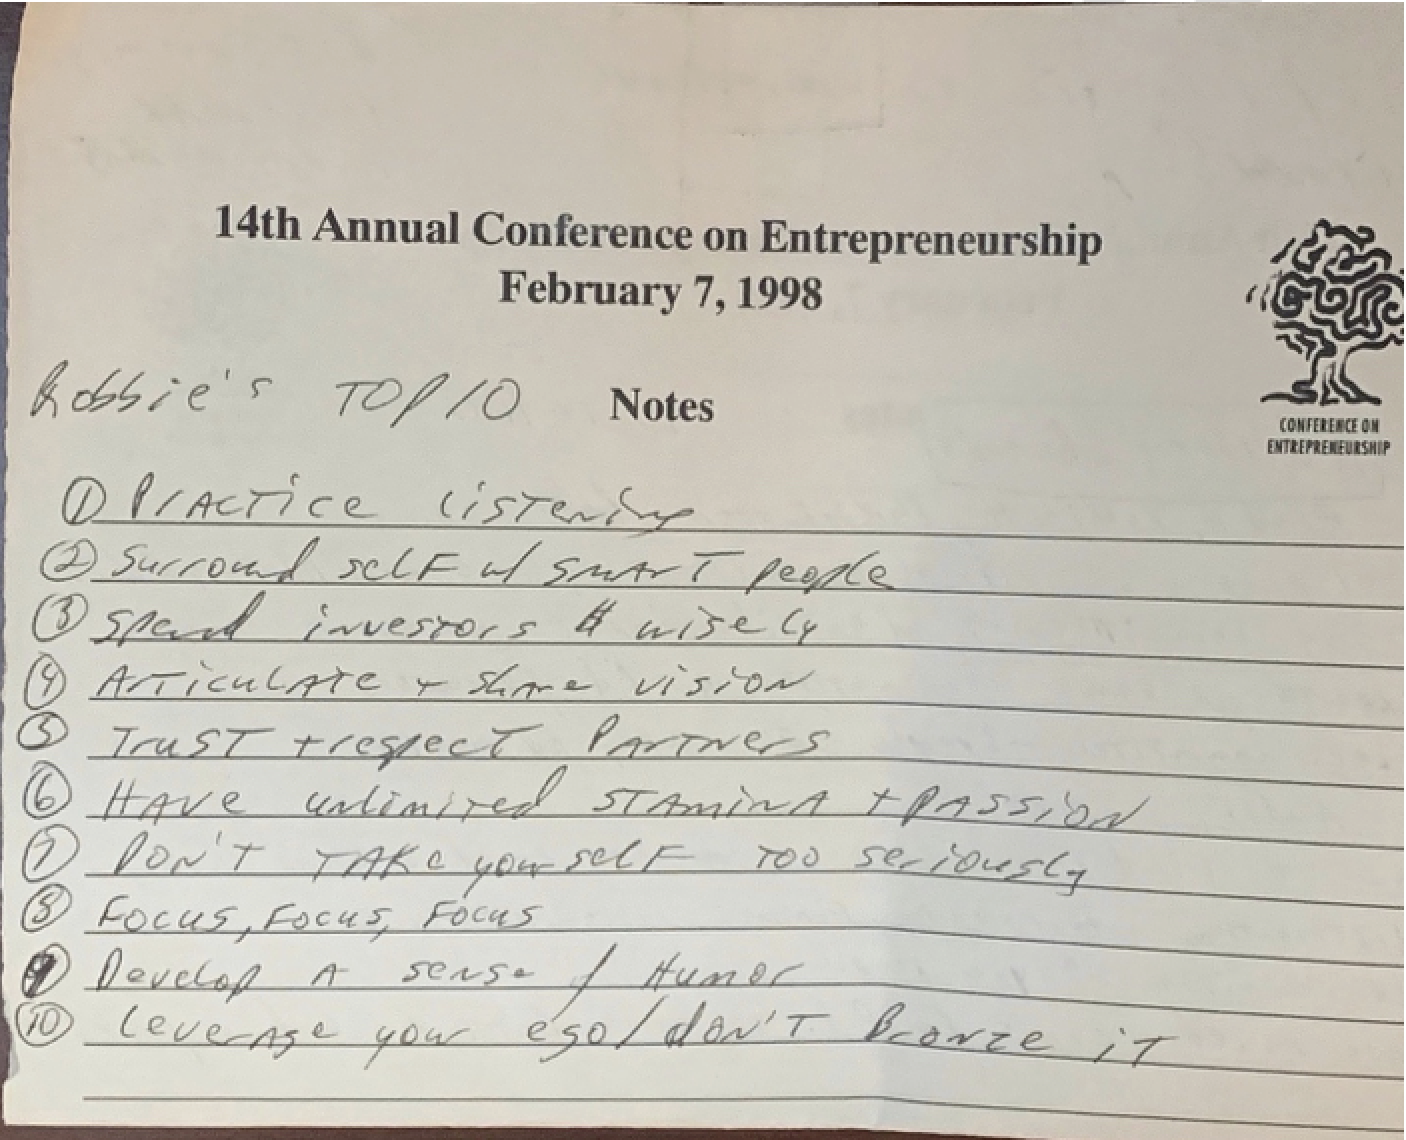 14th Annual Conference on Entrepreneurship
February 7, 1998
Robbie's TOP 10
Notes
CONFERENCE ON
ENTREPRENEURSHIP
① Practice Listening
② Surround self w/ smart people
③ Spend investors $ wisely
④ Articulate + share vision
⑤ Trust + respect Partners
⑥ Have unlimited stamina + passion
⑦ Don't take yourself too seriously
⑧ Focus, Focus, Focus
⑨ Develop a sense / Humor
⑩ Leverage your ego/don't Bronze it